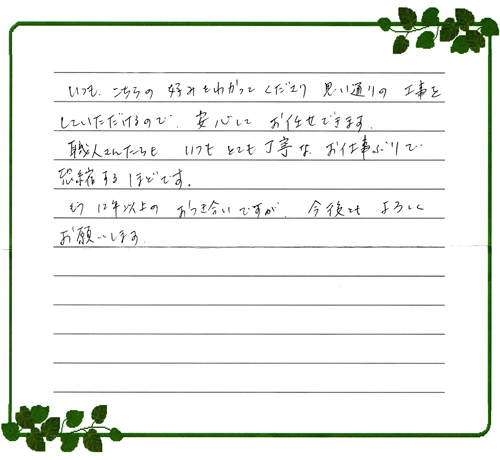 いつも、こちらの好みをわかってくださり思い通りの工事を
していただけるので、安心してお任せできます。
職人さんたちもいつもとても丁寧なお仕事ぶりで
恐縮するほどです。
もう12年以上のおつき合いですが、今後ともよろしく
お願いします。